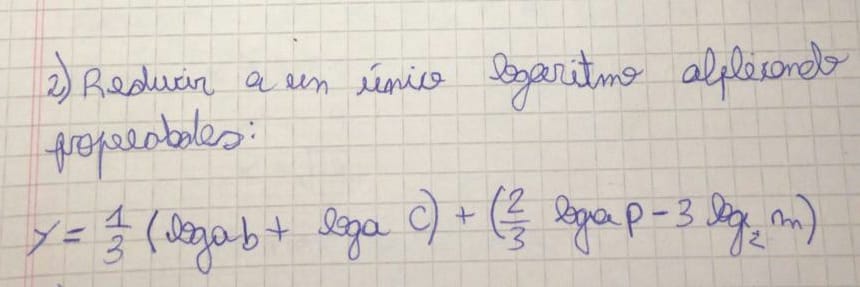 2) Reducir a un único logaritmo aplicando
propiedades:
y = 1/3 (loga b + loga c) + (2/3 loga p - 3 log₂ m)